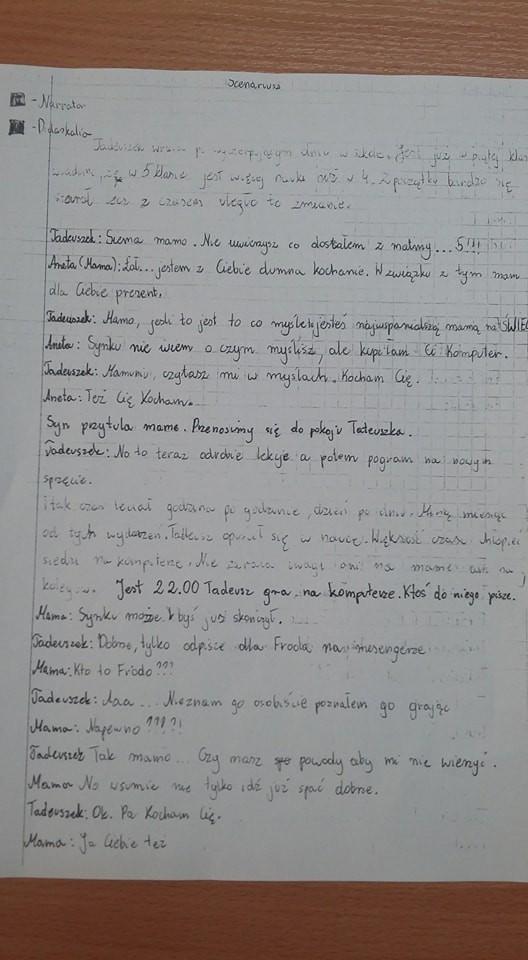 Scenariusz
- Narrator
- Didaskalia
Tadeuszek wraca po wyczerpującym dniu w szkole. Jest już w piątej klas
wiadomo, że w 5 klasie jest więcej nauki niż w 4. Z początku bardzo się
starał lecz z czasem uległo to zmianie.
Tadeuszek: Siema mamo. Nie uwierzysz co dostałem z matmy...5!!!
Aneta (Mama): Łał... jestem z Ciebie dumna kochanie. W związku z tym mam
dla Ciebie prezent.
Tadeuszek: Mamo, jeśli to jest to co myślę to jesteś najwspanialszą mamą na ŚWIEC
Aneta: Synku nie wiem o czym myślisz, ale kupiłam Ci Komputer.
Tadeuszek: Mamuniu, czytasz mi w myślach. Kocham Cię.
Aneta: Też Cię Kocham.
Syn przytula mame. Przenosimy się do pokoju Tadeuszka.
Tadeuszek: No to teraz odrobie lekcje a potem pogram na nowym
sprzęcie.
I tak czas leciał godzina po godzinie, dzień po dniu. Minął miesiąc
od tych wydarzeń. Tadeusz opuścił się w nauce. Większość czasu chłopiec
siedzi na komputerze. Nie zwraca uwagi ani na mamę ani na
kolegów. Jest 22.00 Tadeusz gra na komputerze. Ktoś do niego pisze.
Mama: Synku może byś już skończył.
Tadeuszek: Dobrze, tylko odpisze dla Froda na messengerze
Mama: Kto to Frodo???
Tadeuszek: Aaa... Nieznam go osobiście poznałem go grając
Mama: Napewno ???!?!
Tadeuszek Tak mamo... Czy masz powody aby mi nie wierzyć.
Mama No wsumie nie tylko idź już spać dobrze.
Tadeuszek: Ok. Pa Kocham Cię.
Mama: Ja Ciebie też